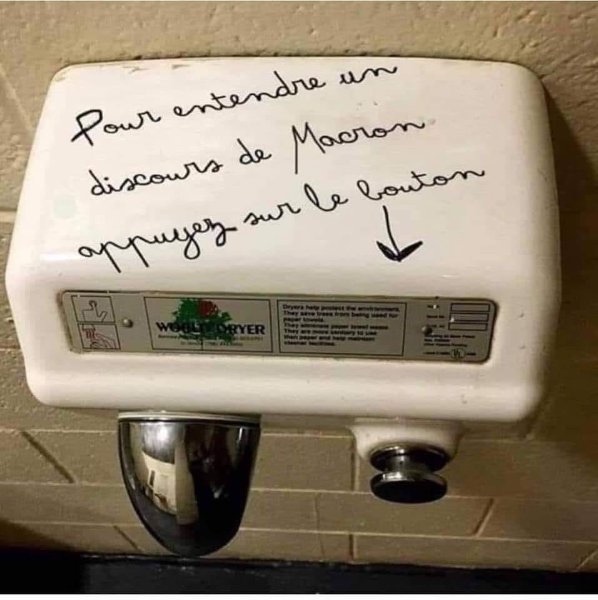 Pour entendre un
discours de Macron
appuyez sur le bouton
WORLD DRYER
Dryers help protect the environment.
They save trees from being used for
paper towels.
They eliminate paper towel waste
They are more sanitary to use
than paper and help maintain
cleaner facilities.